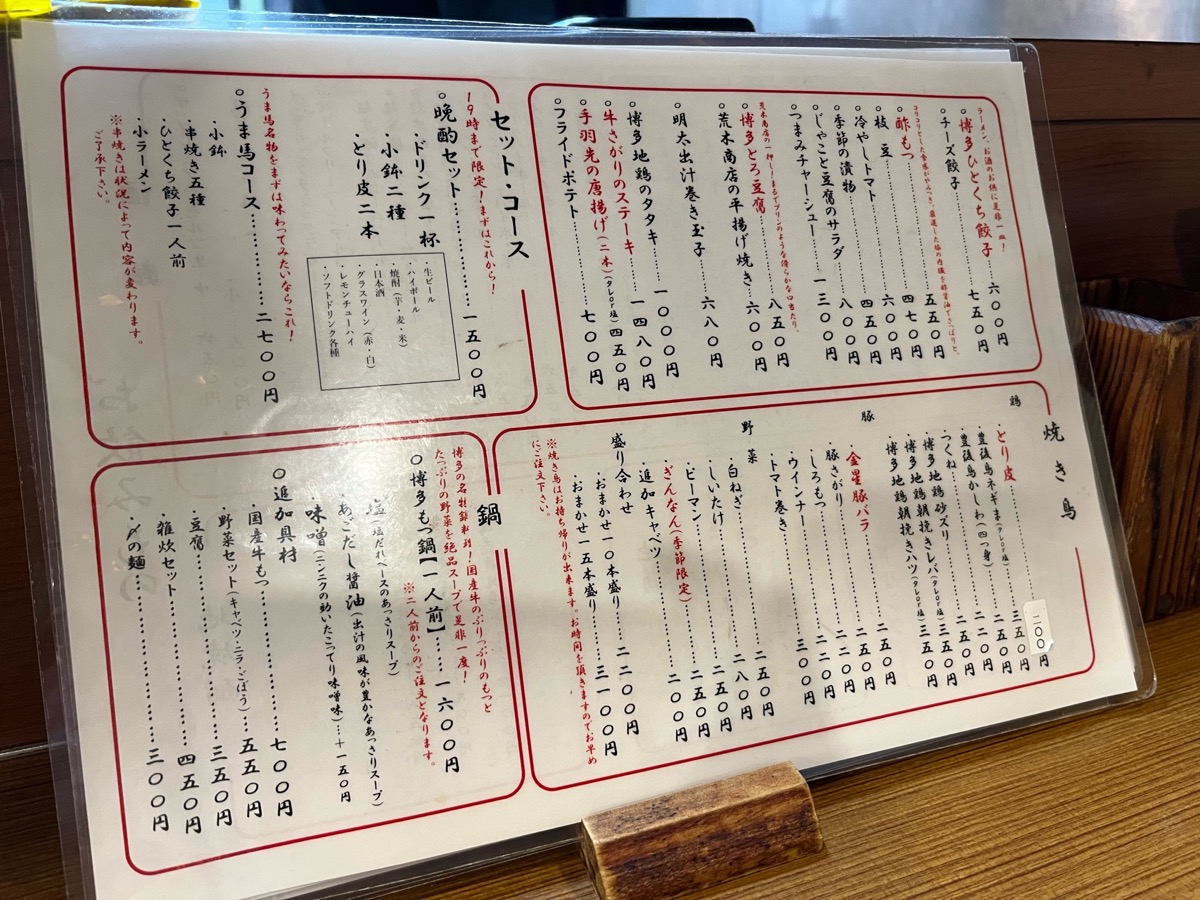 ラーメン、お酒のお供に是非一皿！
○博多ひとくち餃子……六〇〇円
○チーズ餃子……七五〇円
コリコリとした食感がやみつき。厳選した豚の内臓を酢醤油でさっぱりと。
○酢もつ……五五〇円
○枝　豆……四七〇円
○冷やしトマト……六〇〇円
○季節の漬物……四五〇円
○じゃこと豆腐のサラダ……八〇〇円
○つまみチャーシュー……一三〇〇円
荒木商店の一押し！まるでプリンのような滑らかな口当たり。
○博多とろ豆腐……八五〇円
荒木商店の平揚げ焼き……六〇〇円
明太出汁巻き玉子……六八〇円
○博多地鶏のタタキ……一〇〇〇円
○牛さがりのステーキ……一四八〇円
○手羽先の唐揚げ（二本）（タレor塩）四五〇円
○フライドポテト……七〇〇円
セット・コース
19時まで限定！まずはこれから！
○晩酌セット……一五〇〇円
・ドリンク一杯
・小鉢二種
・とり皮二本
・生ビール
・ハイボール
・焼酎（芋・麦・米）
・日本酒
・グラスワイン（赤・白）
・レモンチューハイ
・ソフトドリンク各種
うま馬名物をまずは味わってみたいならこれ！
○うま馬コース……二七〇〇円
・小鉢
・串焼き五種
・ひとくち餃子一人前
・小ラーメン
※串焼きは状況によって内容が変わります。
ご了承下さい。
焼き鳥
鶏
・とり皮……二〇〇円
・豊後鳥ネギま（タレor塩）……三五〇円
・豊後鳥かしわ（四つ身）……二五〇円
・つくね……二五〇円
・博多地鶏砂ズリ……二五〇円
・博多地鶏朝挽きレバ（タレor塩）三五〇円
・博多地鶏朝挽きハツ（タレor塩）三五〇円
豚
・金星豚バラ……二五〇円
・豚さがり……二五〇円
・しろもつ……二二〇円
・ウインナー……二二〇円
・トマト巻き……三〇〇円
野菜
・白ねぎ……二五〇円
・しいたけ……二八〇円
・ピーマン……二五〇円
・ぎんなん（季節限定）……二五〇円
・追加キャベツ……二〇〇円
盛り合わせ
・おまかせ一〇本盛り……二二〇〇円
・おまかせ一五本盛り……三一〇〇円
※焼き鳥はお持ち帰りが出来ます。お時間を頂きますので、お早め
にご注文下さい。
鍋
博多の名物鍋料理！国産牛のぷりっぷりのもつと
たっぷりの野菜を絶品スープで是非一度！
○博多もつ鍋【一人前】……一六〇〇円
※二人前からのご注文となります。
塩（塩だれベースのあっさりスープ）
あごだし醤油（出汁の風味が豊かなあっさりスープ）
味噌（ニンニクの効いたこってり味噌味）…＋一五〇円
○追加具材
・国産牛もつ……七〇〇円
・野菜セット（キャベツ・ニラ・ごぼう）……五五〇円
・豆腐……三五〇円
・雑炊セット……四五〇円
・〆の麺……三〇〇円